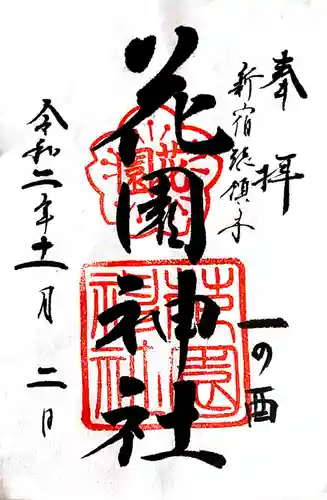 奉拝
新宿総鎮守
一の酉
花園神社
花園
花園神社
令和二年十一月二日